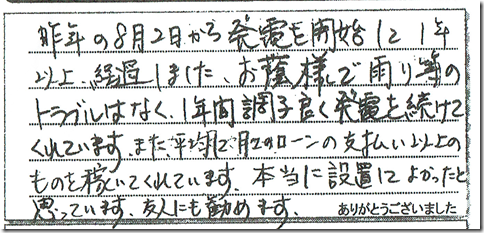 昨年の8月2日から発電を開始して1年
以上、経過しました、お蔭様で雨り等の
トラブルはなく、1年間調子良く発電を続けて
くれています。また平均で月々のローンの支払い以上の
ものを稼いでくれています。本当に設置してよかったと
思っています、友人にも勧めます、 ありがとうございました